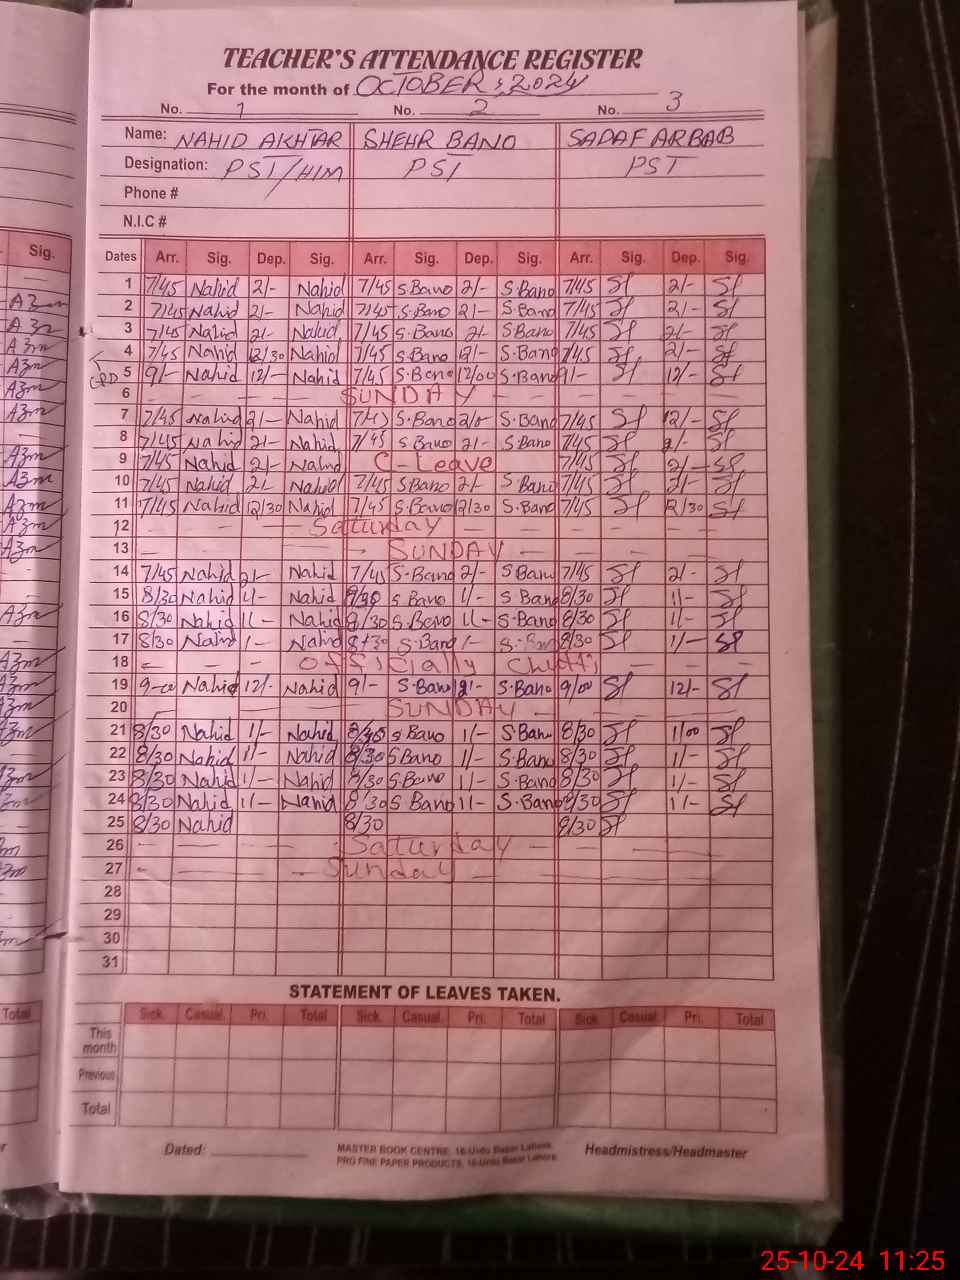 TEACHER'S ATTENDANCE REGISTER
For the month of OCTOBER, 2024
No. 1 No. 2 No. 3
Name: NAHID AKHTAR SHEHR BANO SADAF ARBAB
Designation: PST/HM PST PST
Phone #
N.I.C #
Sig.
Dates Arr. Sig. Dep. Sig. Arr. Sig. Dep. Sig. Arr. Sig. Dep. Sig.
1 7/45 Nahid 2/- Nahid 7/45 S.Bano 2/- S.Bano 7/45 2/-
2 7/45 Nahid 2/- Nahid 7/45 S.Bano 2/- S.Bano 7/45 2/-
3 7/45 Nahid 2/- Nahid 7/45 S.Bano 2/- S Bano 7/45 2/-
4 7/45 Nahid 12/30 Nahid 7/45 S.Bano 12/- S.Bano 7/45 2/-
5 9/- Nahid 12/- Nahid 7/45 S.Bano 12/00 S.Bano 9/- 12/-
6 SUNDAY
7 7/45 Nahid 2/- Nahid S.Bano S.Bano 7/45 12/-
8 7/45 Nahid 2/- Nahid 7/45 S Bano 2/- S.Bano 7/45 2/-
9 7/45 Nahid 2/- Nahid C-Leave 7/45 2/-
10 7/45 Nahid 2/- Nahid 7/45 S Bano 2/- S.Bano 7/45 2/-
11 7/45 Nahid 12/30 Nahid 7/45 S.Bano 12/30 S.Bano 7/45 12/30
12 Saturday
13 SUNDAY
14 7/45 Nahid 2/- Nahid 7/45 S.Bano 2/- S Bano 7/45 2/-
15 8/30 Nahid 1/- Nahid 8/30 S Bano 1/- S Bano 8/30 1/-
16 8/30 Nahid 1/- Nahid 8/30 S.Bano 1/- S.Bano 8/30 1/-
17 8/30 Nahid 1/- Nahid 8/30 S.Bano 1/- S.Bano 8/30 1/-
18 Officially Chutti
19 9-00 Nahid 12/- Nahid 9/- S.Bano 12/- S.Bano 9/00 12/-
20 SUNDAY
21 8/30 Nahid 1/- Nahid 8/45 S Bano 1/- S.Bano 8/30 1/00
22 8/30 Nahid 1/- Nahid 8/30 S Bano 1/- S.Bano 8/30 1/-
23 8/30 Nahid 1/- Nahid 8/30 S.Bano 1/- S.Bano 8/30 1/-
24 8/30 Nahid 1/- Nahid 8/30 S Bano 1/- S.Bano 8/30 1/-
25 8/30 Nahid 8/30 8/30
26 Saturday
27 Sunday
28
29
30
31
STATEMENT OF LEAVES TAKEN.
Total
Sick. Casual. Pri. Total Sick. Casual. Pri. Total Sick Casual. Pri. Total
This month
Previous
Total
Dated:
MASTER BOOK CENTRE, 16-Urdu Bazar Lahore.
PRO FINE PAPER PRODUCTS, 16-Urdu Bazar Lahore.
Headmistress/Headmaster
25-10-24 11:25